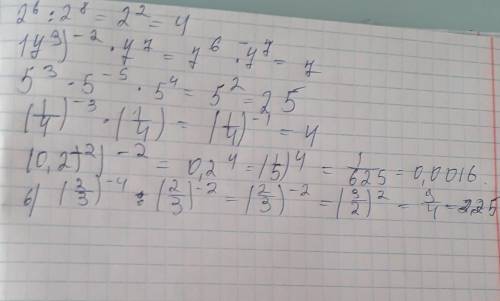 2⁶ : 2⁸ = 2² = 4
(y³)⁻² · y⁷ = y⁶ · y⁷ = y
5³ · 5⁻⁵ · 5⁴ = 5² = 25
(1/4)⁻³ · (1/4) = (1/4)⁻¹ = 4
(0,2⁺²)⁻² = 0,2⁴ = (1/5)⁴ = 1/625 = 0,0016
б) (2/3)⁻⁴ : (2/3)⁻² = (2/3)⁻² = (3/2)² = 9/4 = 2,25